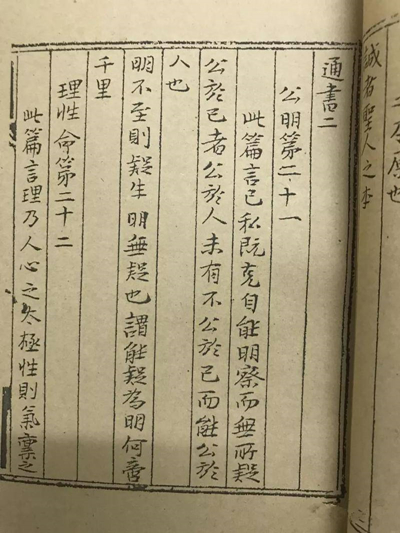 誠者聖人之本
通書二
公明第二十一
此篇言己私既克自能明察而無所疑
公於己者公於人未有不公於己而能公於
人也
明不至則疑生明無疑也謂能疑為明何啻
千里
理性命第二十二
此篇言理乃人心之太極性則氣稟之